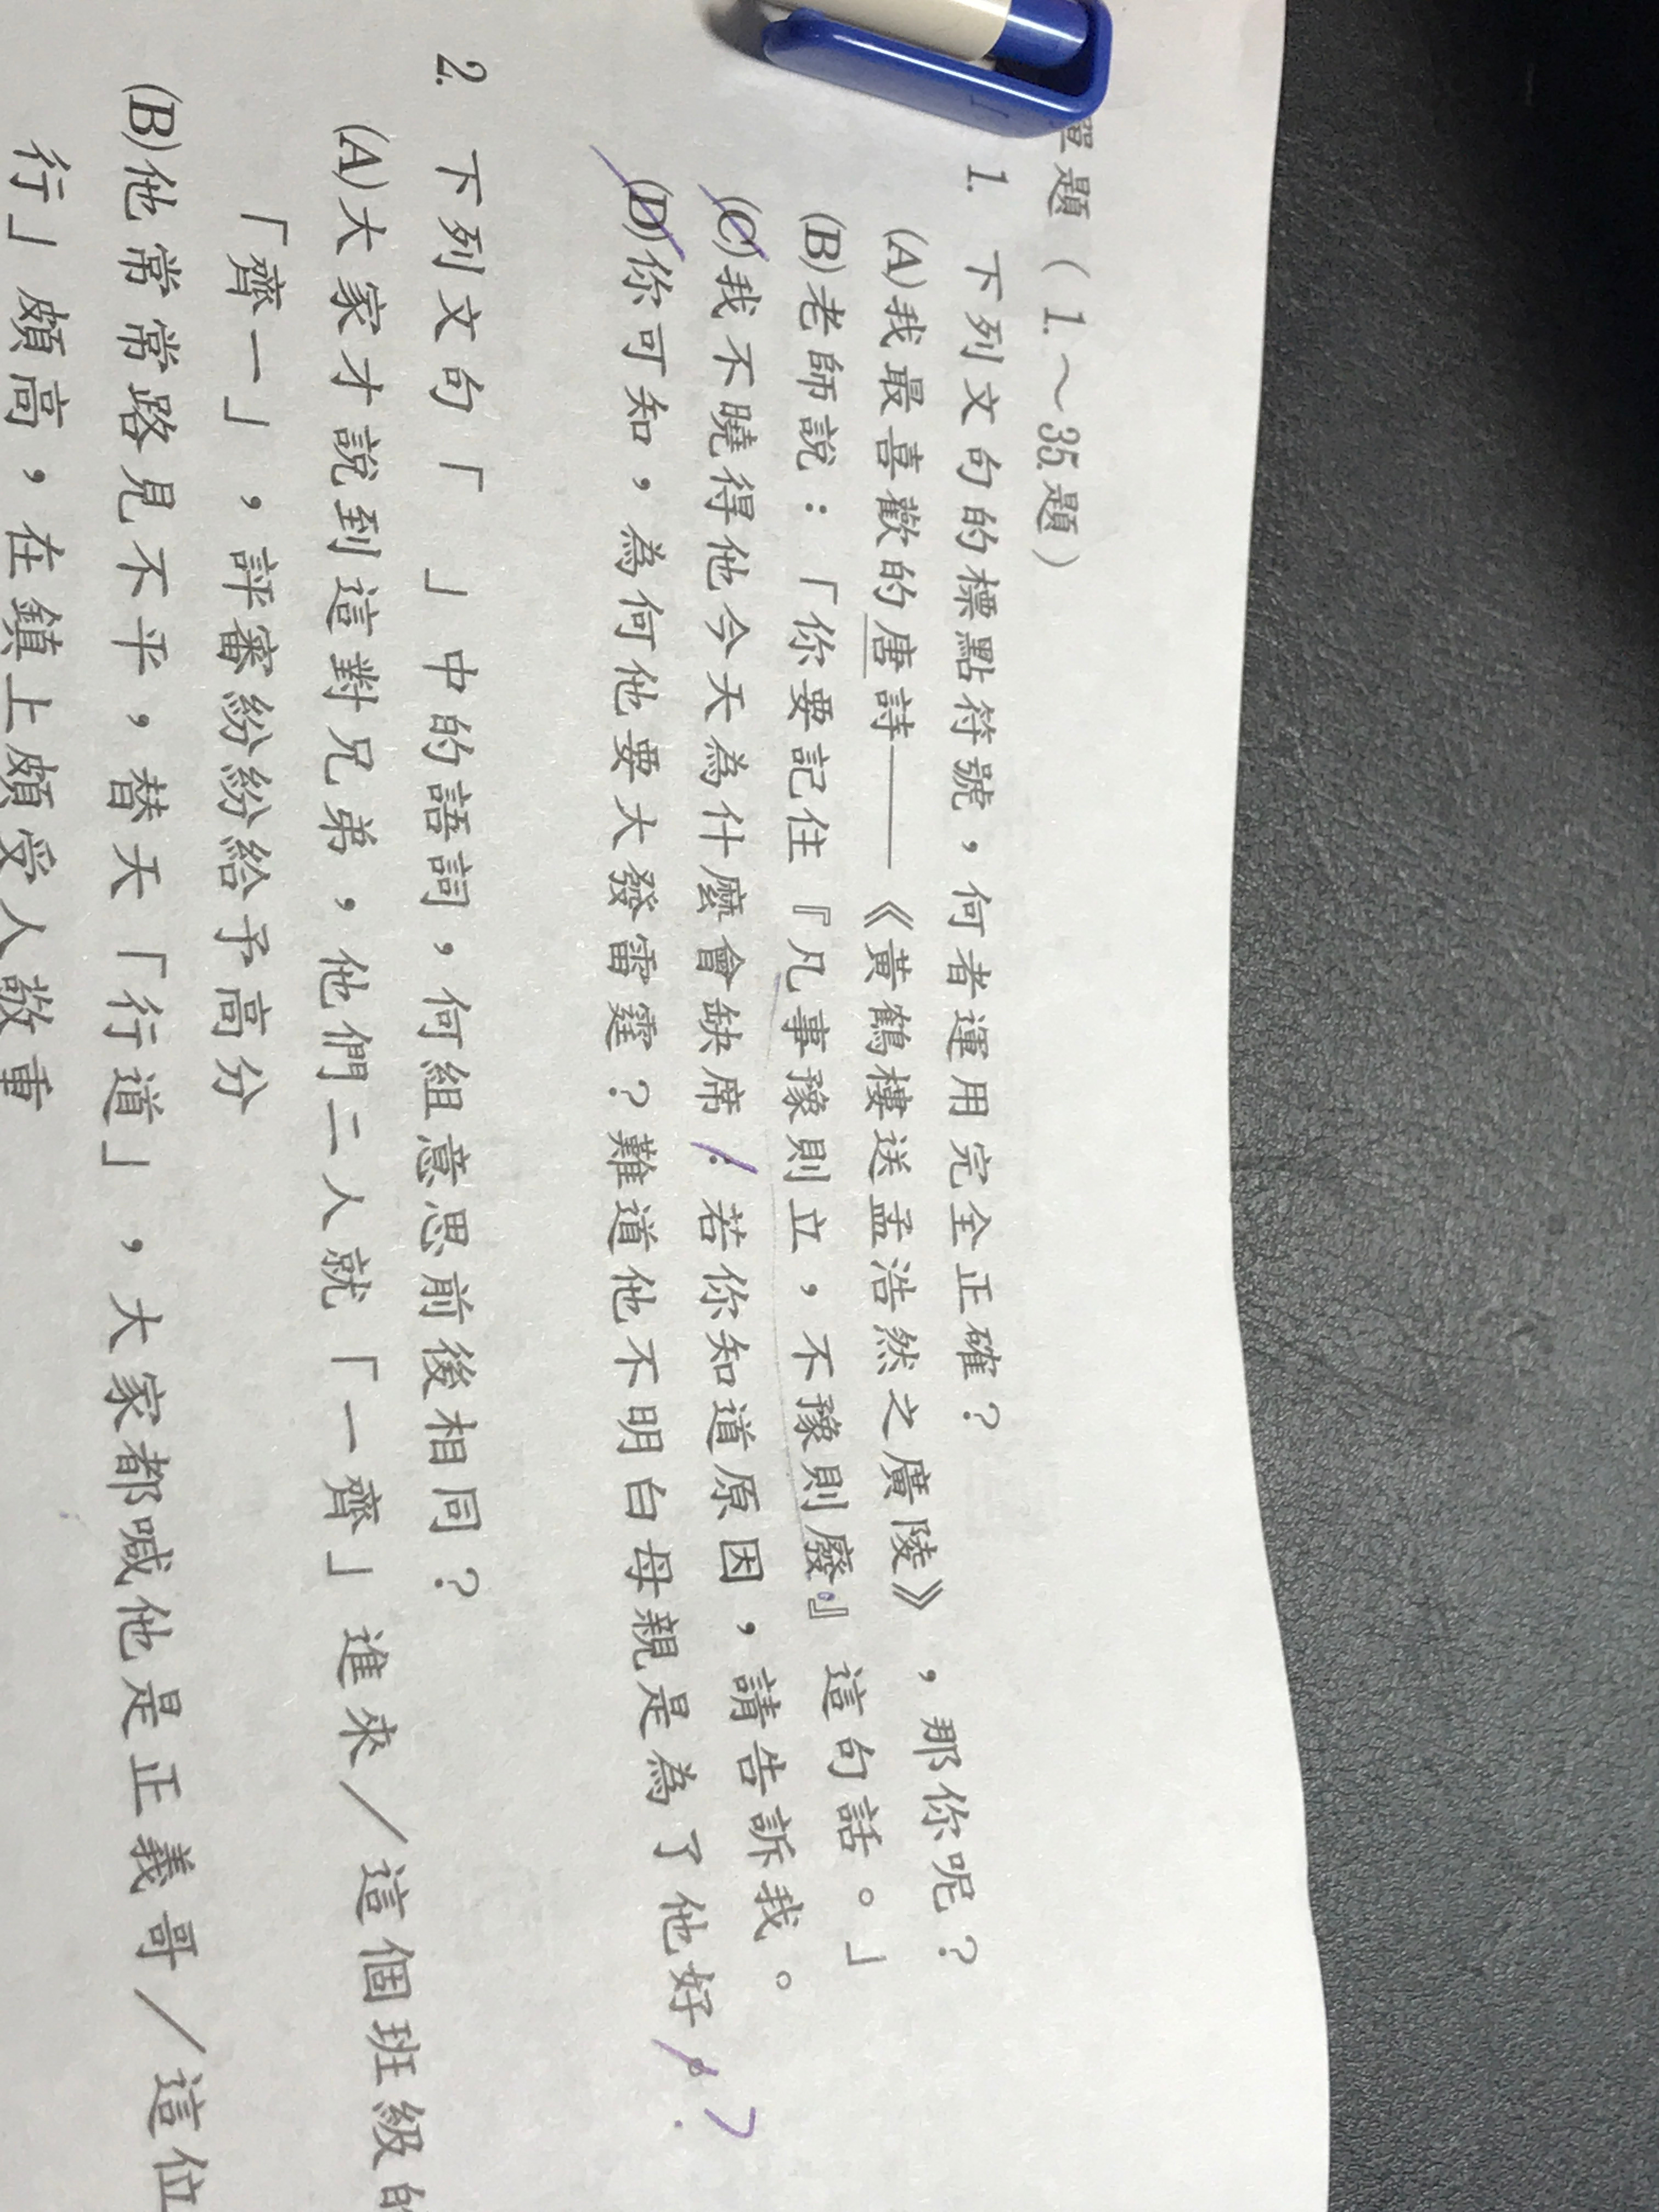 單題（1.～35.題）
1. 下列文句的標點符號，何者運用完全正確？
(A)我最喜歡的唐詩——《黃鶴樓送孟浩然之廣陵》，那你呢？
(B)老師說：「你要記住『凡事豫則立，不豫則廢。』這句話。」
(C)我不曉得他今天為什麼會缺席？若你知道原因，請告訴我。
(D)你可知，為何他要大發雷霆？難道他不明白母親是為了他好。?
2. 下列文句「　」中的語詞，何組意思前後相同？
(A)大家才說到這對兄弟，他們二人就「一齊」進來／這個班級的
「齊一」，評審紛紛給予高分
(B)他常常路見不平，替天「行道」，大家都喊他是正義哥／這位
行」頗高，在鎮上頗受人敬重